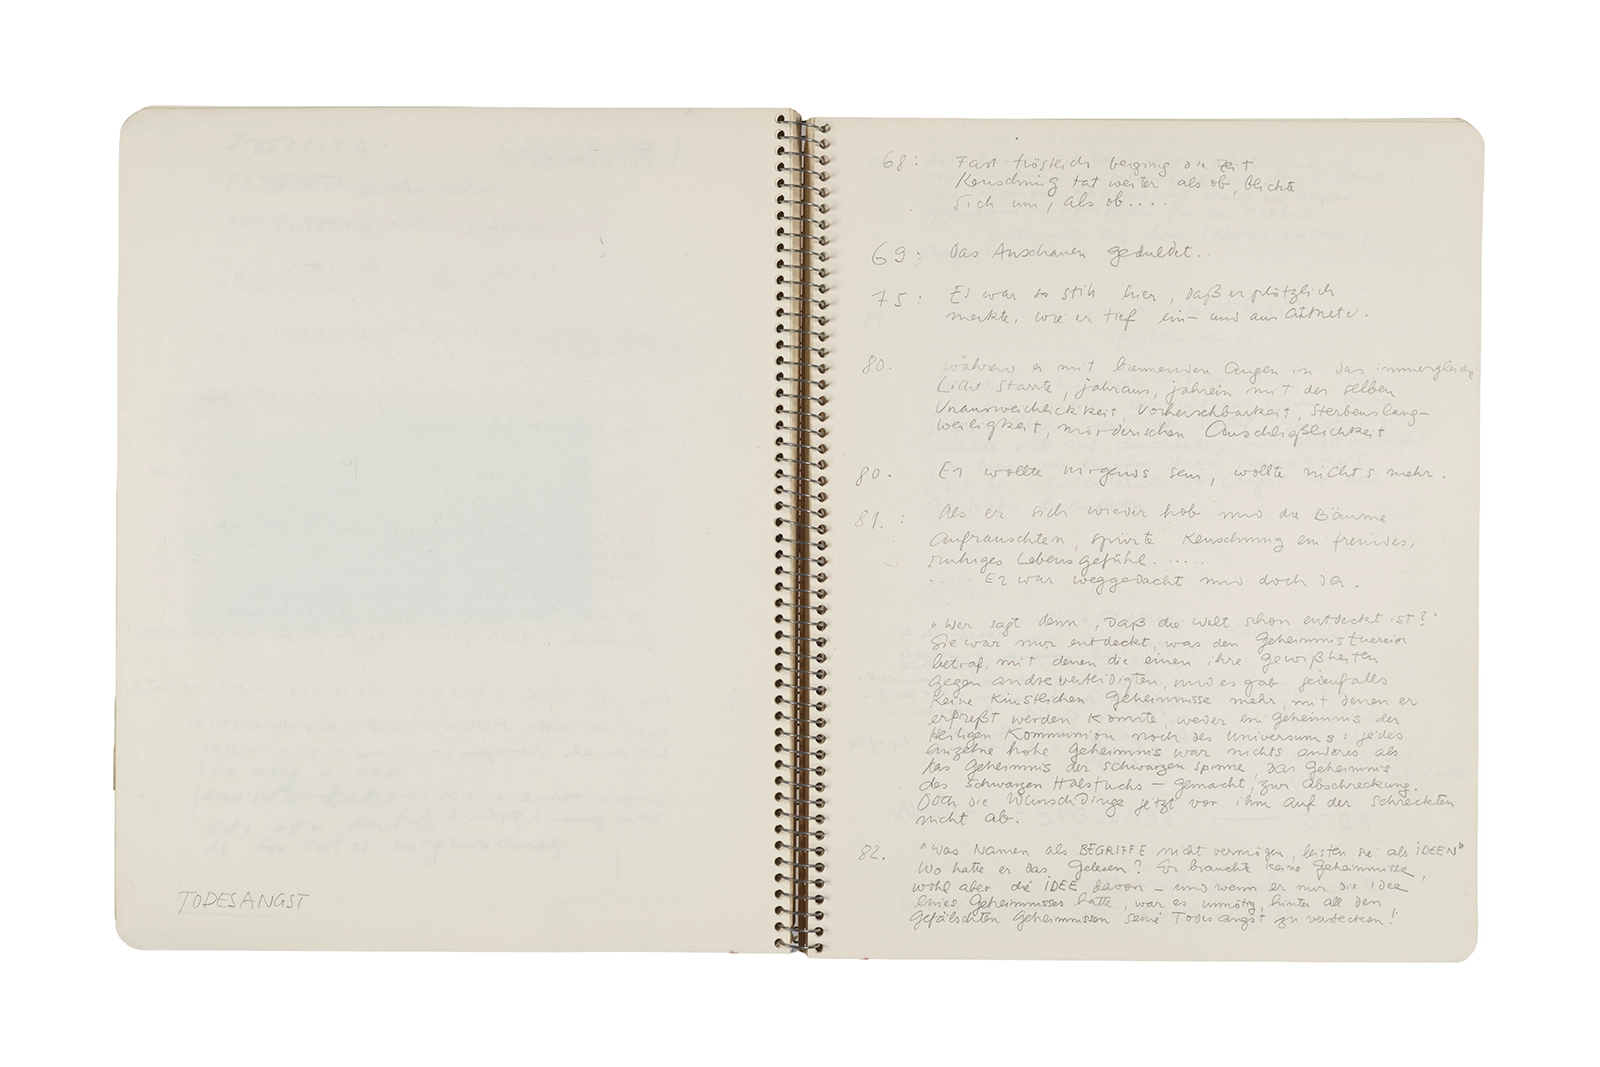 TODESANGST
68: Fast tröstlich verging die Zeit
Keuschnig tat weiter als ob, blickte
sich um, als ob....
69: Das Anschauen geduldet...
75: Es war so still hier, daß er plötzlich
merkte, wie er tief ein- und aus atmete.
80. während er mit brennenden Augen in das immergleiche
Licht starrte, jahraus, jahrein mit der selben
Unausweichlichkeit, Vorhersehbarkeit, Sterbenslang-
weiligkeit, mörderischen Ausschließlichkeit
80. Er wollte nirgends sein, wollte nichts mehr.
81.: Als er sich wieder hob und die Bäume
aufrauschten, spürte Keuschnig ein fremdes,
ruhiges Lebensgefühl......
..... Er war weggedacht und doch da.
"Wer sagt denn, daß die Welt schon entdeckt ist?"
Sie war nur entdeckt, was den Geheimnistuerein
betraf, mit denen die einen ihre Gewißheiten
gegen andre verteidigten, und es gab jedenfalls
keine künstlichen Geheimnisse mehr, mit denen er
erpreßt werden konnte, weder ein Geheimnis der
Heiligen Kommunion noch des Universums: jedes
einzelne hohe Geheimnis war nichts anderes als
das Geheimnis der schwarzen Spinne, das Geheimnis
des schwarzen Halstuchs – gemacht, zur Abschreckung.
Doch die Wunschdinge jetzt vor ihm auf der schreckten
nicht ab.
82. "Was Namen als BEGRIFFE nicht vermögen, leisten sie als IDEEN"
Wo hatte er das gelesen? Er brauchte keine Geheimnisse,
wohl aber die IDEE davon – und wenn er nur die Idee
eines Geheimnisses hatte, war es unnötig, hinter all den
gefälschten Geheimnissen seine Todesangst zu verstecken!